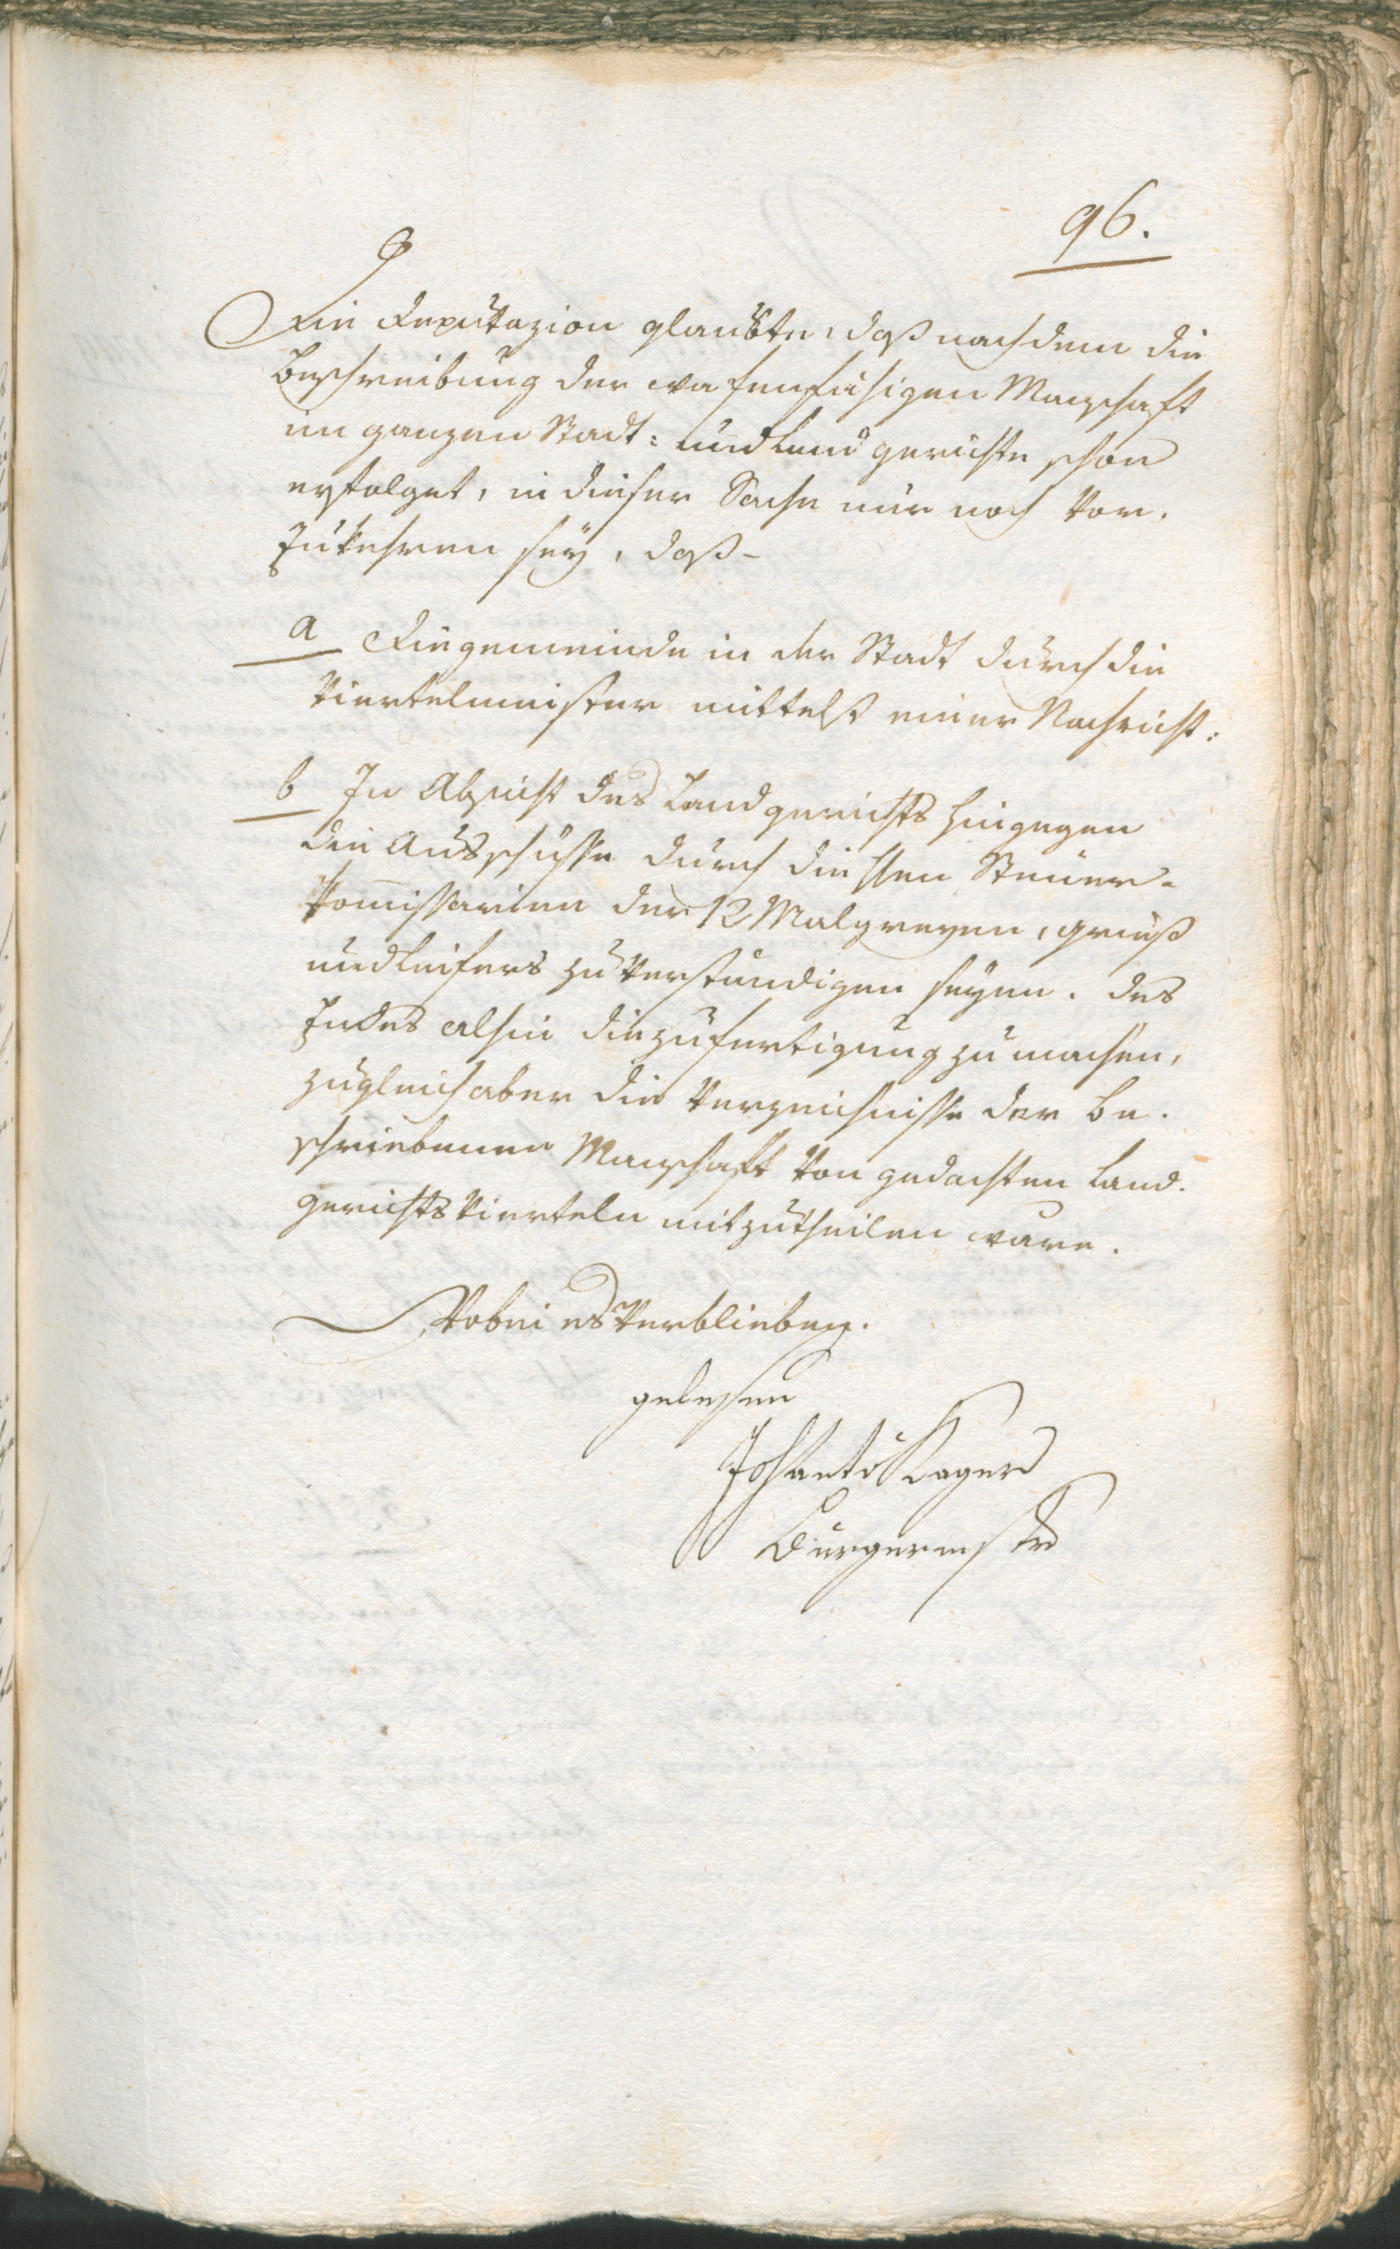 96.
Die Deputazion glaubte, daß nachdem die
Beschreibung der wafenfähigen Manschaft
im ganzen Stadt: und Landgerichte schon
erfolget, in dieser Sache nur noch vor.
zukehren seÿ, daß-
a Die gemeinde in der Stadt durch die
Viertelmeister mittelst einer Nachricht:
b In Absicht des Landgerichts hingegen
die Ausschüsse durch die Steuer-
komissarien der 12 Malgreyen, gries
und Leifers zu verständigen seyen. des
Endes alhin die zufertigung zu machen,
zugleich aber die Verzeichnisse der be.
schriebenen Manschaft von gedachten Land.
gerichts Vierteln mitzutheilen wäre.
Wobei es verblieben.
gelesen
Joh Kager
Burgermstr